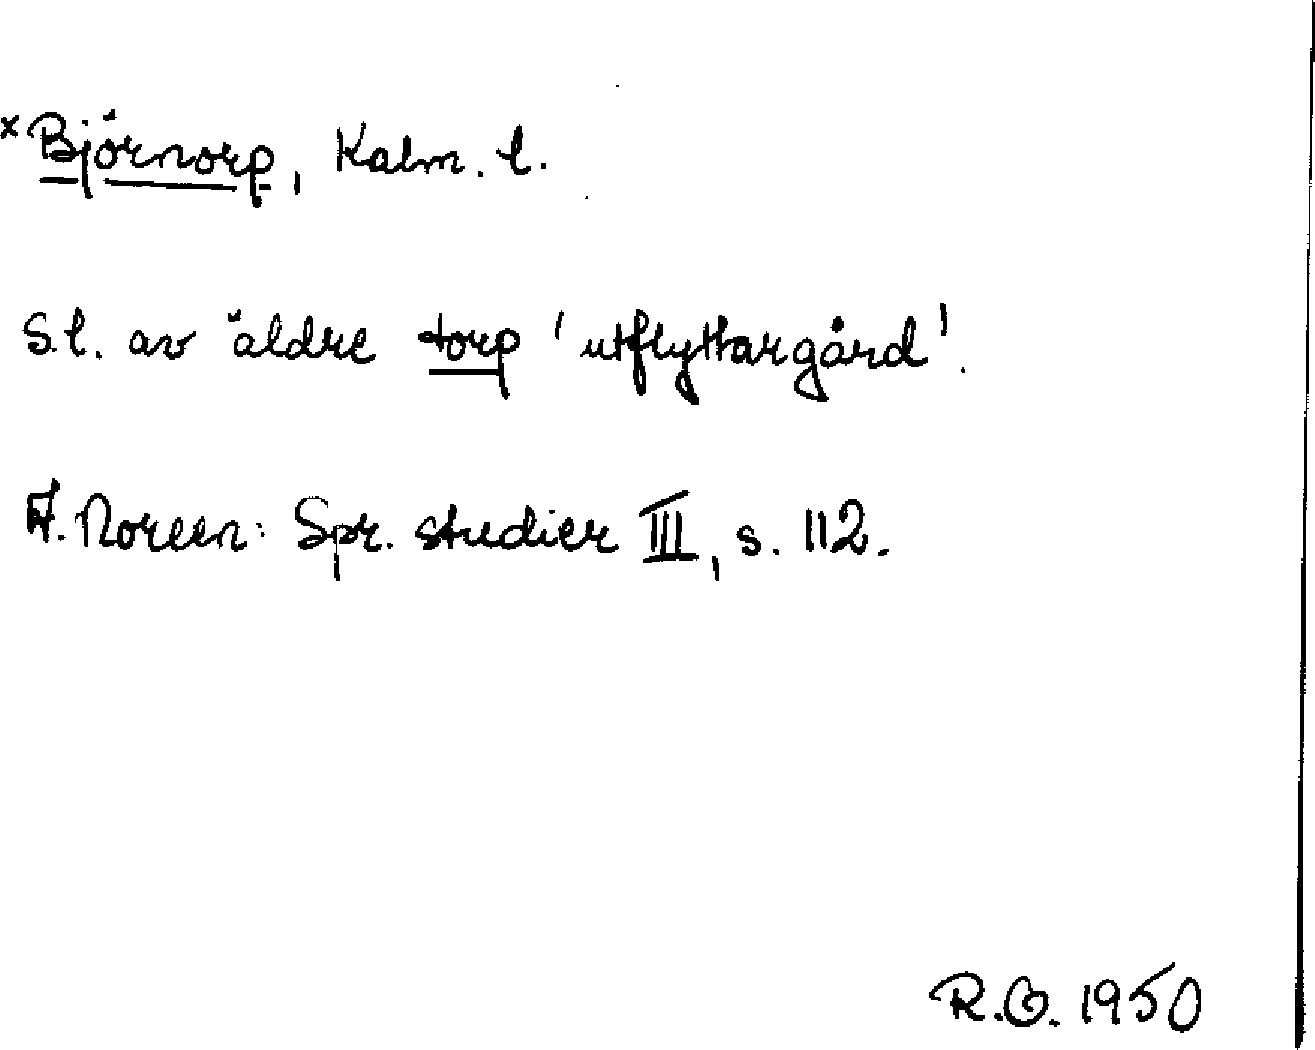 ×Björnorp, Kalm. l.
S.l. av äldre torp 'utflyttargård'.
A. Noreen: Spr. studier III, s. 112.
R.O. 1950